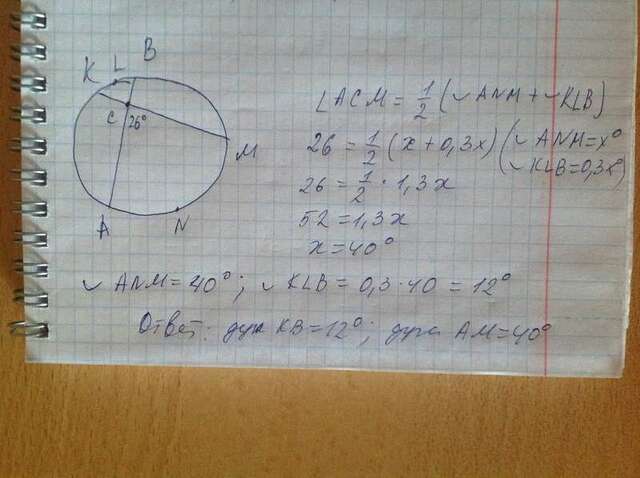 K L B
C 26°
M
A N
∠ACM = 1/2 (◡ANM + ◡KLB)
26 = 1/2 (x + 0,3x) (◡ANM = x°
◡KLB = 0,3x°
26 = 1/2 · 1,3x
52 = 1,3x
x = 40°
◡ANM = 40°; ◡KLB = 0,3·40 = 12°
Ответ: дуга KB = 12°; дуга AM = 40°